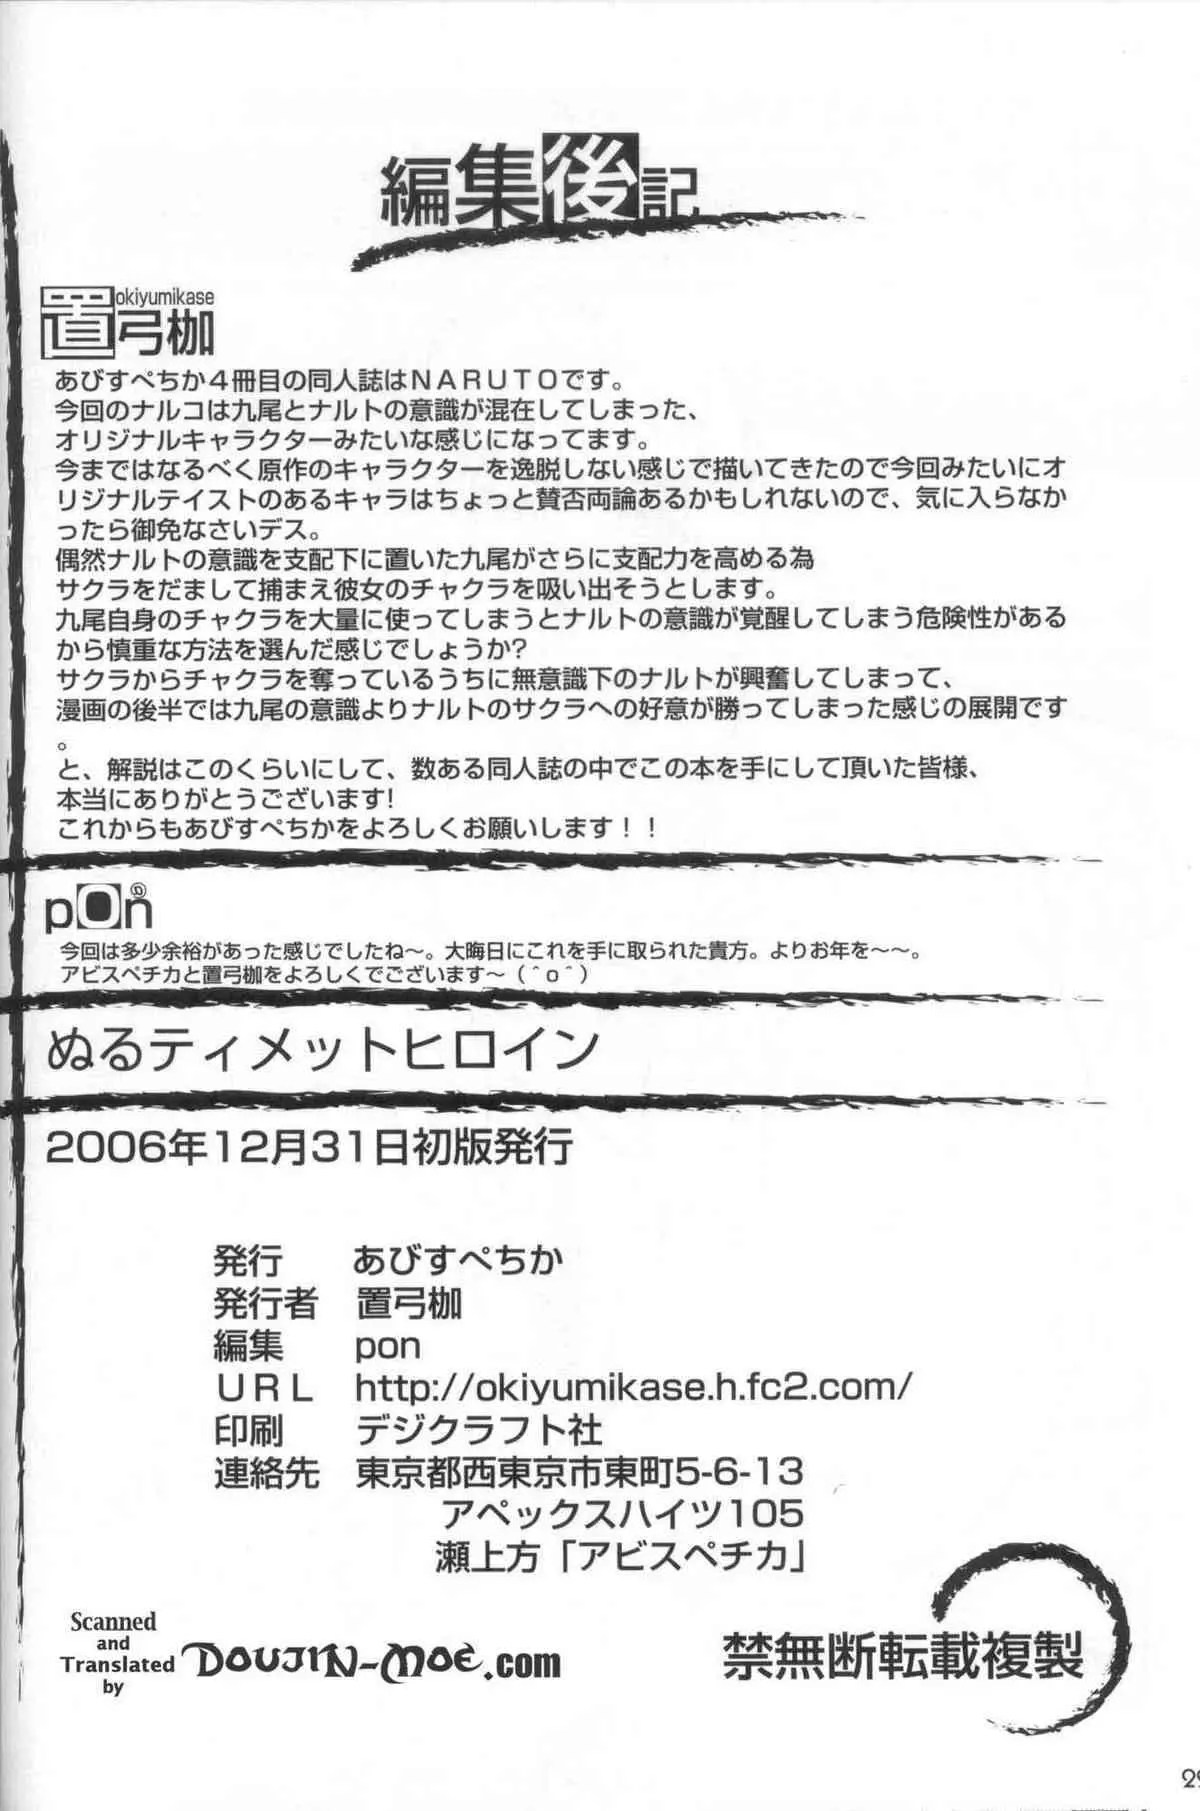 編集後記
okiyumikase
置弓枷
あびすぺちか4冊目の同人誌はNARUTOです。
今回のナルコは九尾とナルトの意識が混在してしまった、
オリジナルキャラクターみたいな感じになってます。
今まではなるべく原作のキャラクターを逸脱しない感じで描いてきたので今回みたいにオ
リジナルテイストのあるキャラはちょっと賛否両論あるかもしれないので、気に入らなか
ったら御免なさいデス。
偶然ナルトの意識を支配下に置いた九尾がさらに支配力を高める為
サクラをだまして捕まえ彼女のチャクラを吸い出そうとします。
九尾自身のチャクラを大量に使ってしまうとナルトの意識が覚醒してしまう危険性がある
から慎重な方法を選んだ感じでしょうか?
サクラからチャクラを奪っているうちに無意識下のナルトが興奮してしまって、
漫画の後半では九尾の意識よりナルトのサクラへの好意が勝ってしまった感じの展開です
。
と、解説はこのくらいにして、数ある同人誌の中でこの本を手にして頂いた皆様、
本当にありがとうございます!
これからもあびすぺちかをよろしくお願いします！！
pOn@
今回は多少余裕があった感じでしたね〜。大晦日にこれを手に取られた貴方。よりお年を〜〜。
アビスペチカと置弓枷をよろしくでございます〜（＾o＾）
ぬるティメットヒロイン
2006年12月31日初版発行
発行 あびすぺちか
発行者 置弓枷
編集 pon
URL http://okiyumikase.h.fc2.com/
印刷 デジクラフト社
連絡先 東京都西東京市東町5-6-13
アペックスハイツ105
瀬上方「アビスペチカ」
Scanned
and
Translated
by
DOUJIN-MOE.com
禁無断転載複製
29